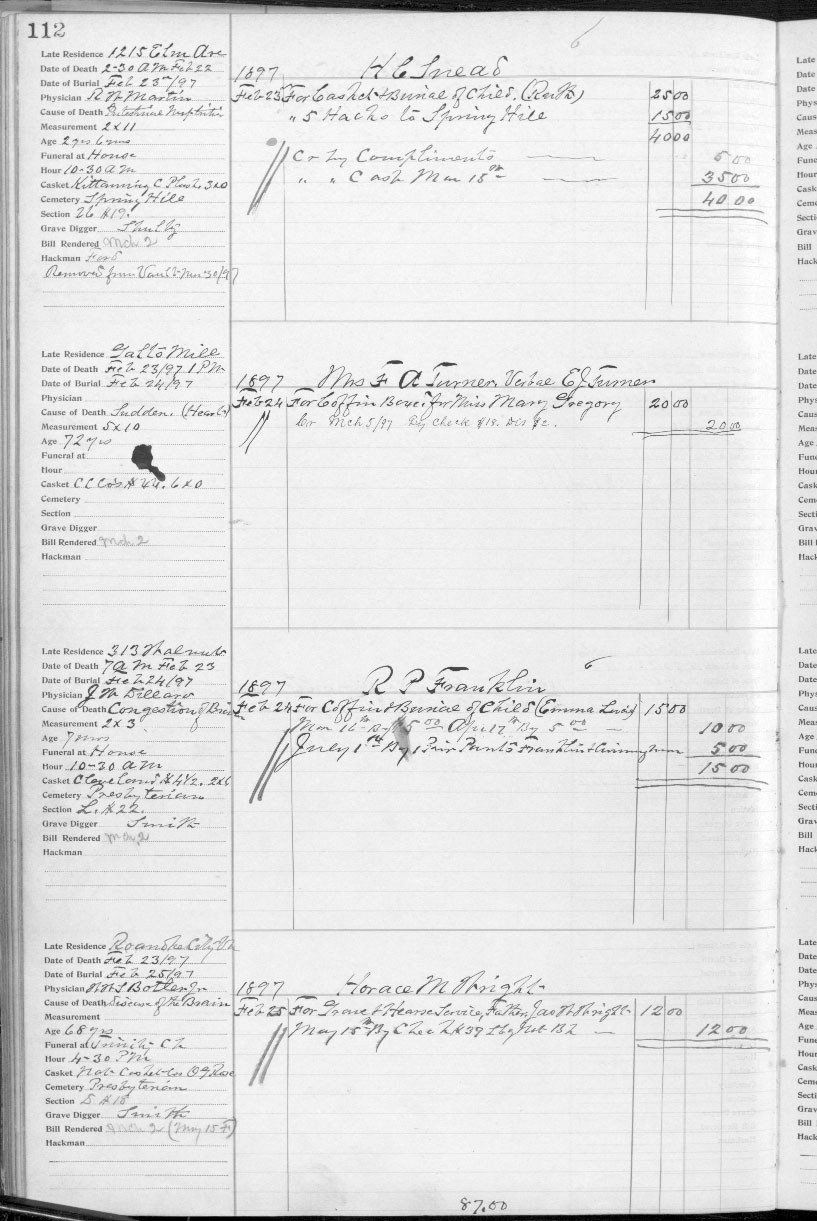 112
6
Late Residence 1215 Elm Ave
Date of Death 2-30 A M Feb 22
Date of Burial Feb 23rd/97
Physician R W Martin
Cause of Death Intestinal
Measurement 2x11
Age 2 yrs 6 mos
Funeral at House
Hour 10-30 A M
Casket Kittanning C Plush. 3x0
Cemetery Spring Hill
Section 26 #19.
Grave Digger
Bill Rendered Mch 2
Hackman Ford
Removed from Vault Mar 30/97
1897 H C Snead
Feb 23 For Casket & Burial of Child. (Ruth) 25 00
" 5 Hacks to Spring Hill 15 00
40 00
Cr by Compliments 5 00
" " Cash Mar 18th 35 00
40 00
Late Residence Galts Mill
Date of Death Feb 23/97 1 P M
Date of Burial Feb 24/97
Physician
Cause of Death Sudden. (Heart)
Measurement 5x10
Age 72 yrs
Funeral at
Hour
Casket C C Co's # 44. 6x0
Cemetery
Section
Grave Digger
Bill Rendered Mch 2
Hackman
1897 Mrs F A Turner. E J Turner
Feb 24 For Coffin Box &c for Miss Mary Gregory 20 00
Cr Mch 5/97 By Check $19. Dis $1. 20 00
Late Residence 313 Walnut
Date of Death 7 A M Feb 23
Date of Burial Feb 24/97
Physician J W Dillard
Cause of Death Congestion of Brain
Measurement 2x3
Age 7 mos
Funeral at House
Hour 10-30 A M
Casket Cleveland # 4 1/2. 2x6
Cemetery Presbyterian
Section L. #22.
Grave Digger Smith
Bill Rendered Mch 2
Hackman
6
1897 R P Franklin
Feb 24 For Coffin & Burial of Child (Emma Lewis) 15 00
Mar 16th By 5 00 Apr 17th By 5 00 10 00
July 1st By 1 Pair Pants Franklin & 5 00
15 00
Late Residence Roanoke City Va
Date of Death Feb 23/97
Date of Burial Feb 25/97
Physician Botler Jr
Cause of Death Disease of the Brain
Measurement
Age 68 yrs
Funeral at Trinity Ch
Hour 4-30 P M
Casket Nat Casket Co
Cemetery Presbyterian
Section S #18
Grave Digger Smith
Bill Rendered Mch 2 (May 15 97)
Hackman
1897 Horace M Wright
Feb 25 For Grave & Hearse Service, Father, Jas W Wright 12 00
May 15th By Check #39 Lbg Nat Bk 12 00
87.00